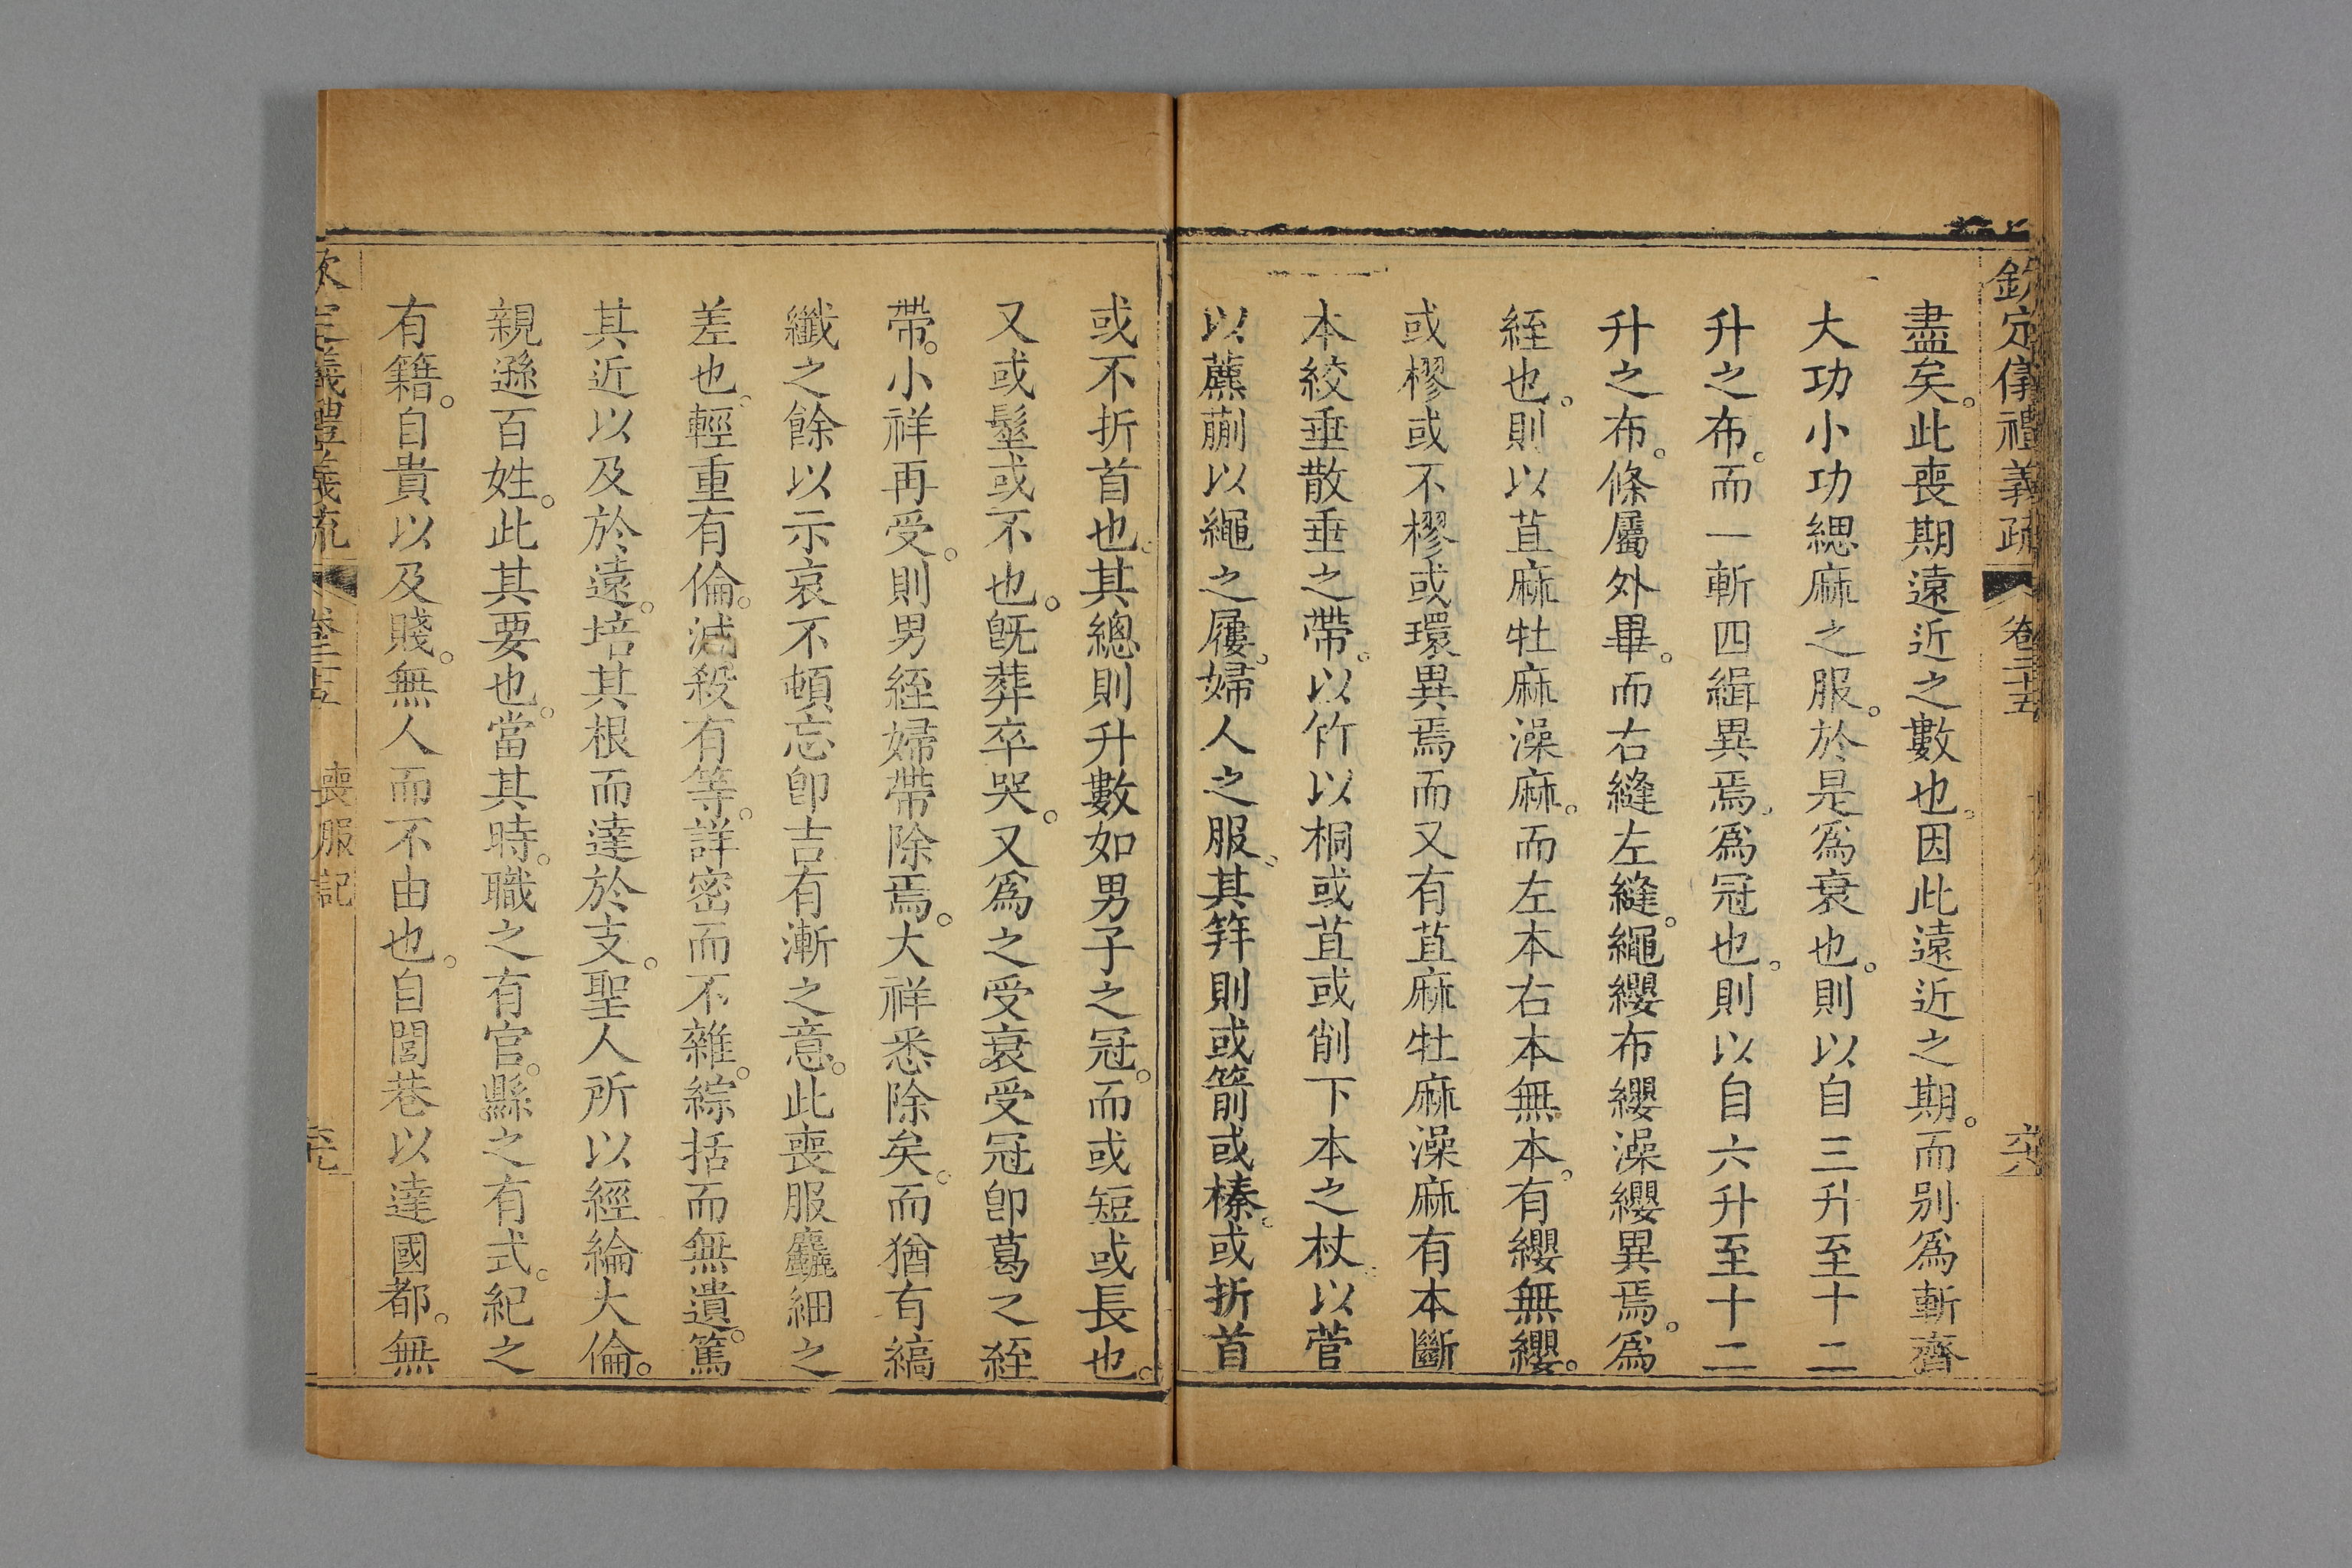 欽定儀禮義疏 卷二十五 六八
盡矣。此喪期遠近之數也。因此遠近之期。而別爲斬齊
大功小功緦麻之服。於是爲衰也。則以自三升至十二
升之布。而一斬四緝異焉。爲冠也。則以自六升至十二
升之布。條屬外畢。而右縫左縫。繩纓布纓澡纓異焉。爲
絰也。則以苴麻牡麻澡麻。而左本右本無本。有纓無纓。
或樛或不樛或環異焉而又有苴麻牡麻澡麻有本斷
本絞垂散垂之帶。以竹以桐或苴或削下本之杖。以菅
以藨蒯以繩之屨。婦人之服。其笄則或箭或榛。或折首
或不折首也。其總則升數如男子之冠。而或短或長也。
又或髽或不也。旣葬卒哭。又爲之受衰受冠卽葛之絰
帶。小祥再受。則男絰婦帶除焉。大祥悉除矣。而猶有縞
纖之餘以示哀不頓忘卽吉有漸之意。此喪服麤細之
差也。輕重有倫。減殺有等。詳密而不雜。綜括而無遺。篤
其近以及於遠。培其根而達於支。聖人所以經綸大倫。
親遜百姓。此其要也。當其時。職之有官。縣之有式。紀之
有籍。自貴以及賤。無人而不由也。自閭巷以達國都。無
欽定儀禮義疏 卷二十五 喪服記 六九